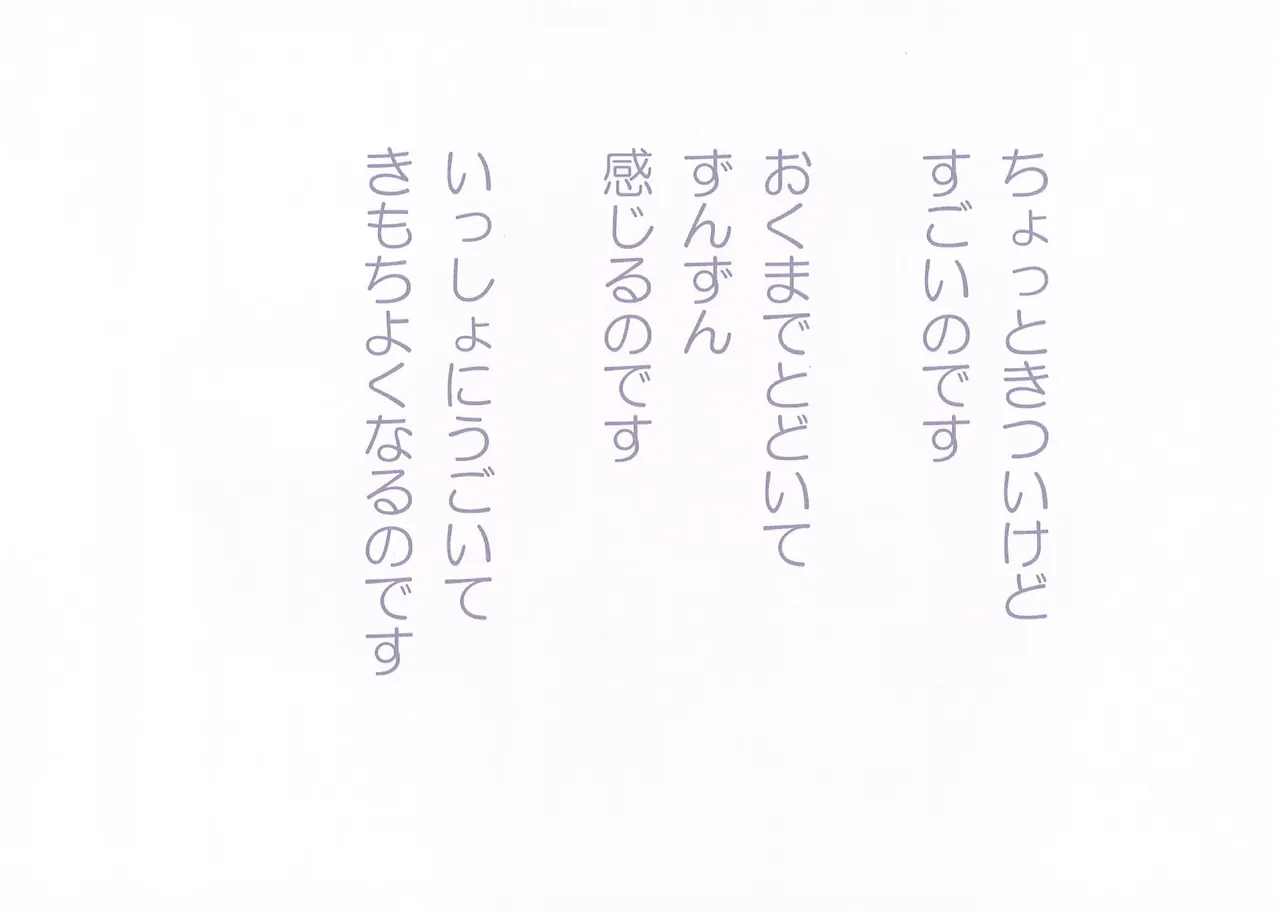 ちょっときついけど
すごいのです
おくまでとどいて
ずんずん
感じるのです
いっしょにうごいて
きもちよくなるのです